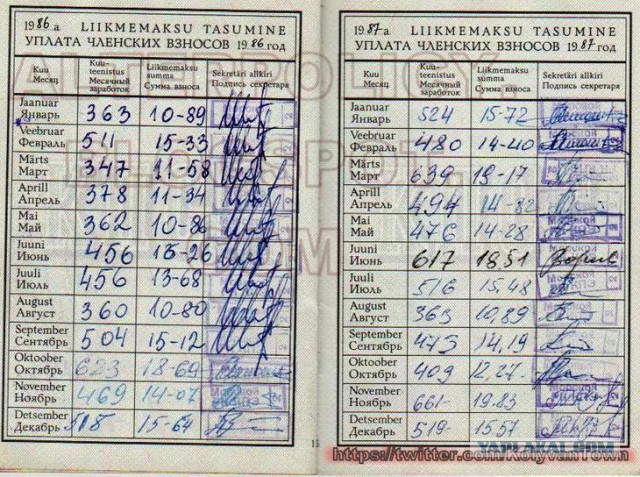 1986 a LIIKMEMAKSU TASUMINE
УПЛАТА ЧЛЕНСКИХ ВЗНОСОВ 1986 год
Kuu Месяц Kuuteenistus Месячный заработок Liikmemaksu summa Сумма взноса Sekretäri allkiri Подпись секретаря
Jaanuar Январь 363 10-89
Veebruar Февраль 511 15-33
Märts Март 347 11-58
Aprill Апрель 378 11-34
Mai Май 362 10-86
Juuni Июнь 456 15-26
Juuli Июль 456 13-68
August Август 360 10-80
September Сентябрь 504 15-12
Oktoober Октябрь 623 18-69
November Ноябрь 469 14-07
Detsember Декабрь 518 15-64
1987 a. LIIKMEMAKSU TASUMINE
УПЛАТА ЧЛЕНСКИХ ВЗНОСОВ 1987 год
Kuu Месяц Kuuteenistus Месячный заработок Liikmemaksu summa Сумма взноса Sekretäri allkiri Подпись секретаря
Jaanuar Январь 524 15-72
Veebruar Февраль 480 14-40
Märts Март 639 19-17
Aprill Апрель 494 14-82
Mai Май 476 14-28
Juuni Июнь 617 18,51
Juuli Июль 516 15,48
August Август 363 10,89
September Сентябрь 473 14,19
Oktoober Октябрь 409 12,27-
November Ноябрь 661- 19.83
Detsember Декабрь 519- 15.57
https://twitter.com/KolyvanTown